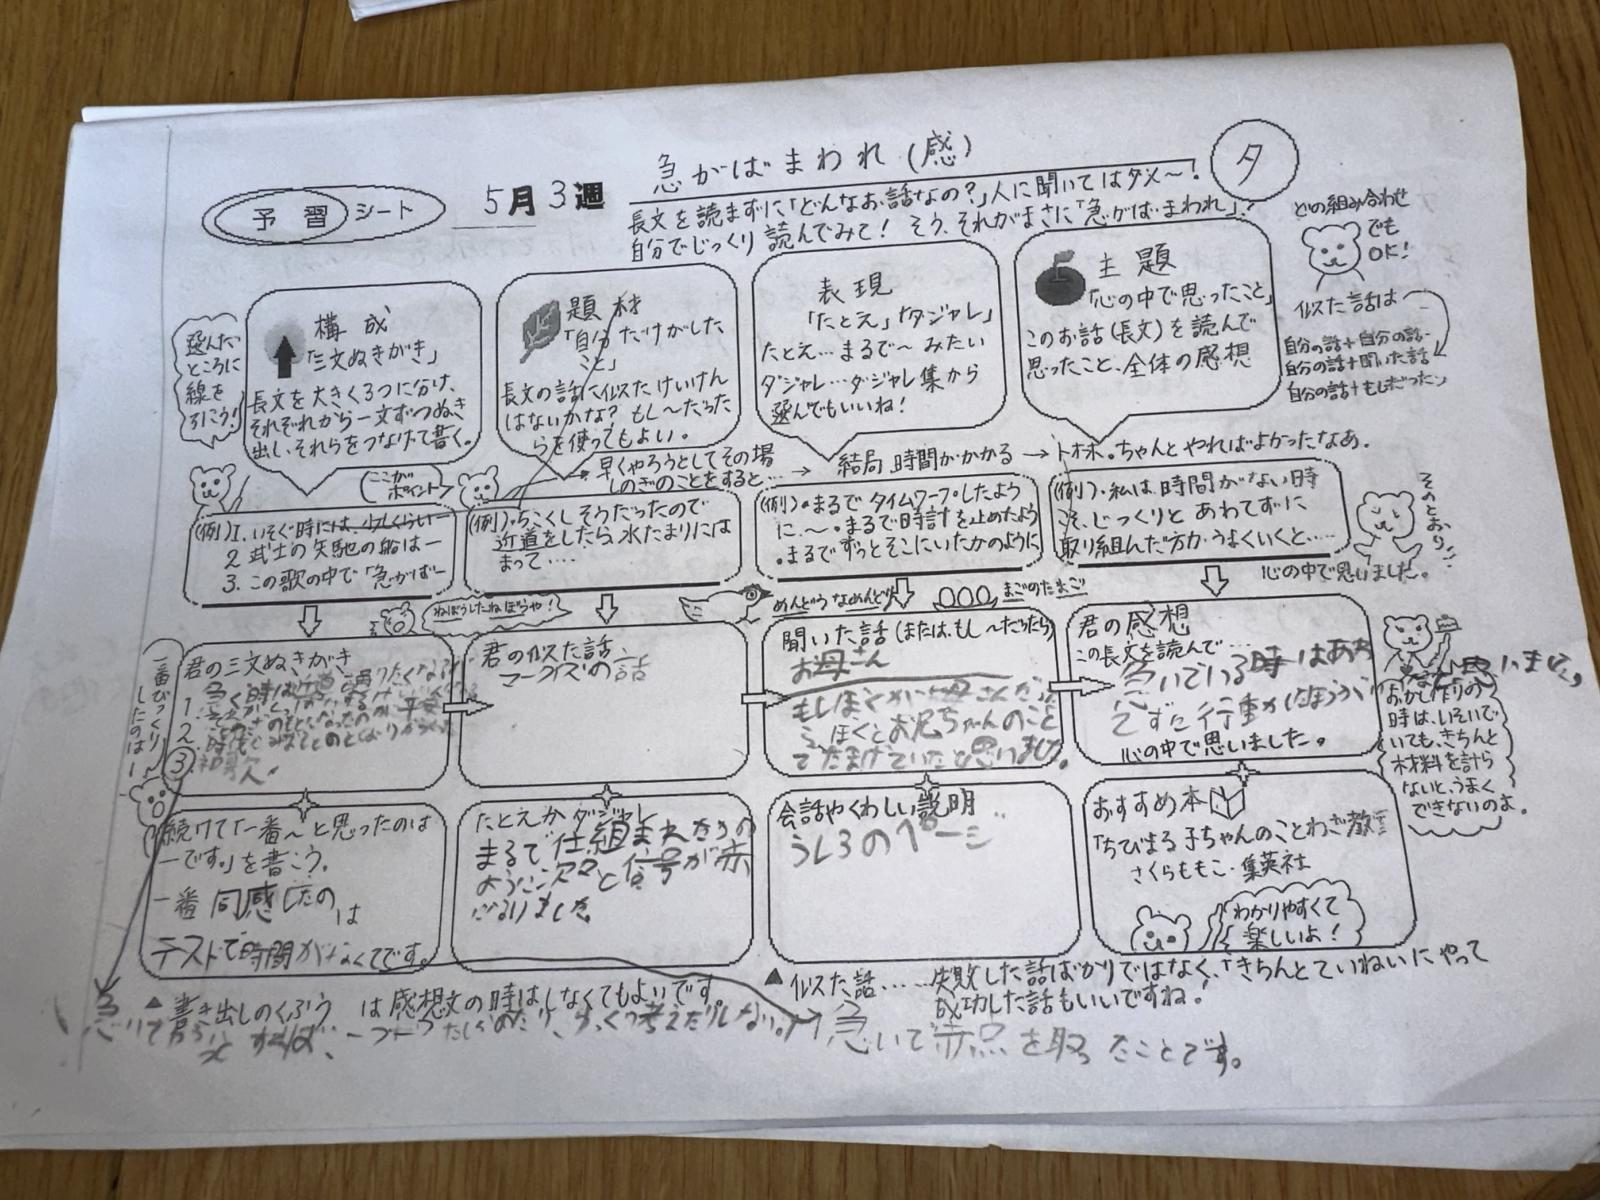 予習シート
5月3週
急がばまわれ(感)
タ
長文を読まずに「どんなお話なの?」人に聞いてはダメ〜!
自分でじっくり読んでみて! そう、それがまさに「急がば・まわれ」!
どの組み合わせ
でも
OK!
選んだ
ところに
線を
引こう!
構成
「三文ぬきがき」
長文を大きく3つに分け、
それぞれから一文ずつぬき
出し、それらをつなげて書く。
題材
「自分だけがした
こと」
長文の話に似たけいけん
はないかな? もし〜だった
らを使ってもよい。
表現
「たとえ」「ダジャレ」
たとえ…まるで〜みたい
ダジャレ…ダジャレ集から
選んでもいいね!
主題
「心の中で思ったこと」
このお話(長文)を読んで
思ったこと、全体の感想
似た話は
自分の話+自分の話
自分の話+聞いた話
自分の話+もしだったら
ここが
ポイント
早くやろうとしてその場
しのぎのことをすると…
→ 結局、時間がかかる → トホホ。ちゃんとやればよかったなあ。
(例)1. いそぐ時には、少しくらいー
2. 武士の矢馳の船はー
3. この歌の中で「急がばー
(例)・ちこくしそうだったので
近道をしたら、水たまりには
まって……
(例)・まるでタイムワープしたよう
に、〜。・まるで時計を止めたよう
・まるでずっとそこにいたかのように
(例)・私は、時間がない時
こそ、じっくりとあわてずに
取り組んだ方が、うまくいくと……
心の中で思いました。
そのとおり!
ねぼうしたねぼうや!
めんどうなめんどり
まごのたまご
一番びっくり
したのはー
君の三文ぬきがき
1
2
3
君の似た話
マークイズの話
聞いた話(または、もし〜だったら)
お母さん
もしぼくがお母さんだった
ら、ぼくとお兄ちゃんのこと
でたまげていたと思いました。
君の感想
この長文を読んで……
急いでいる時はあわ
てずに行動したほうが
心の中で思いました。
おかし作りの
時は、いそいで
いても、きちんと
材料を計ら
ないと、うまく
できないのよ。
続けて「一番〜と思ったのは
ーです。」を書こう。
一番 同感したの は
テストで時間がなくてです。
たとえかダジャレ
まるで仕組まれたかの
ように次々と信号が赤
になりました
会話やくわしい説明
うしろのページ
おすすめ本
「ちびまる子ちゃんのことわざ教室」
さくらももこ・集英社
わかりやすくて
楽しいよ!
▲書き出しのくふう は感想文の時はしなくてもよいです。
▲似た話……失敗した話ばかりではなく、「きちんとていねいにやって
成功した話もいいですね!
急いで赤点を取ったことです。